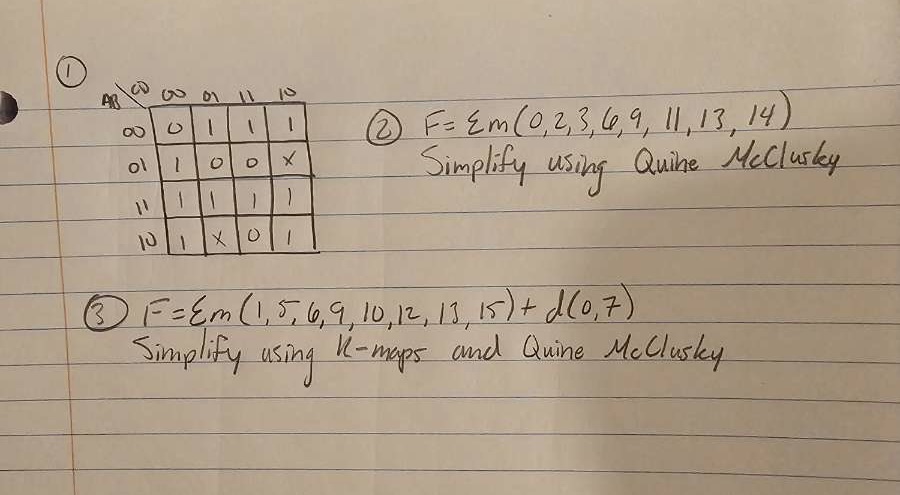 ①
AB \ CD 00 01 11 10
00 0 1 1 1
01 1 0 0 X
11 1 1 1 1
10 1 X 0 1
② F= Σm(0,2,3,6,9,11,13,14)
Simplify using Quine McClusky
③ F=Σm(1,5,6,9,10,12,13,15)+d(0,7)
Simplify using K-maps and Quine McClusky